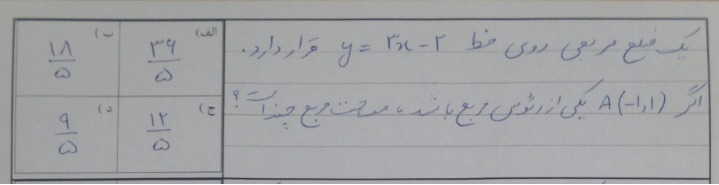 یک ضلع مربعی روی خط y = ۳x - ۲ قرار دارد.
اگر A(-۱,۱) یکی از رئوس مربع باشد، مساحت مربع چند است؟
الف) ۳۶/۵
ب) ۱۸/۵
ج) ۱۲/۵
د) ۹/۵